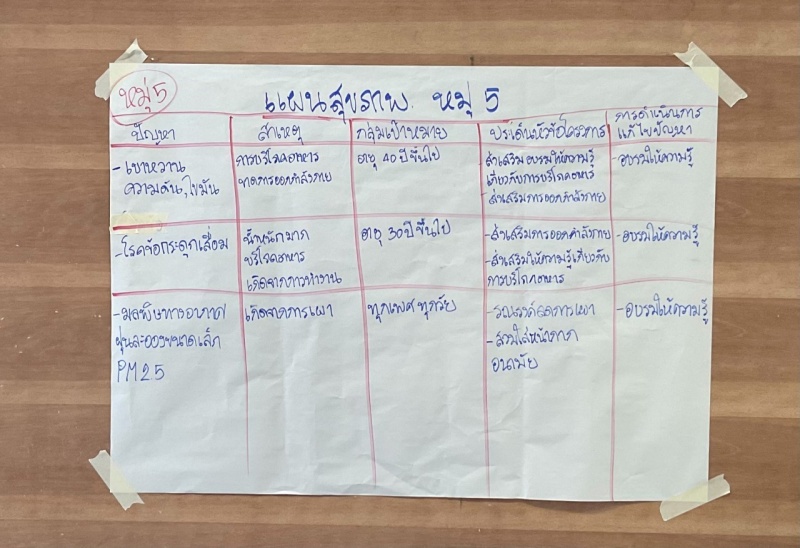 หมู่ 5
แผนสุขภาพ หมู่ 5
ปัญหา
สาเหตุ
กลุ่มเป้าหมาย
ประเด็นหัวข้อโครงการ
การดำเนินการ
แก้ไขปัญหา
- เบาหวาน
ความดัน, ไขมัน
การบริโภคอาหาร
ขาดการออกกำลังกาย
อายุ 40 ปีขึ้นไป
- ส่งเสริมอบรมให้ความรู้
เกี่ยวกับการบริโภคอาหาร
- ส่งเสริมการออกกำลังกาย
- อบรมให้ความรู้
- โรคข้อกระดูกเสื่อม
น้ำหนักมาก
บริโภคอาหาร
เกิดจากการทำงาน
อายุ 30 ปีขึ้นไป
- ส่งเสริมการออกกำลังกาย
- ส่งเสริมให้ความรู้เกี่ยวกับ
การบริโภคอาหาร
- อบรมให้ความรู้
- มลพิษทางอากาศ
ฝุ่นละอองขนาดเล็ก
PM 2.5
เกิดจากการเผา
ทุกเพศ ทุกวัย
- รณรงค์ลดการเผา
- สวมใส่หน้ากาก
อนามัย
- อบรมให้ความรู้